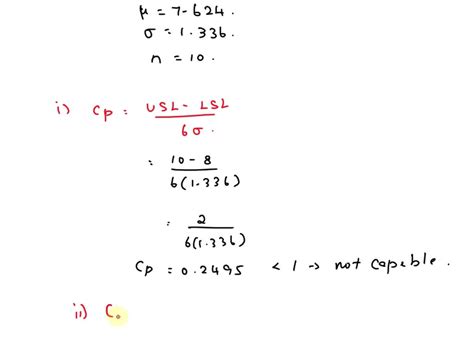 μ = 7-624.
σ = 1.336.
n = 10.
i) Cp = USL - LSL
6σ.
= 10 - 8
6(1.336)
= 2
6(1.336)
Cp = 0.2495 < 1 → not capible.
ii) C.